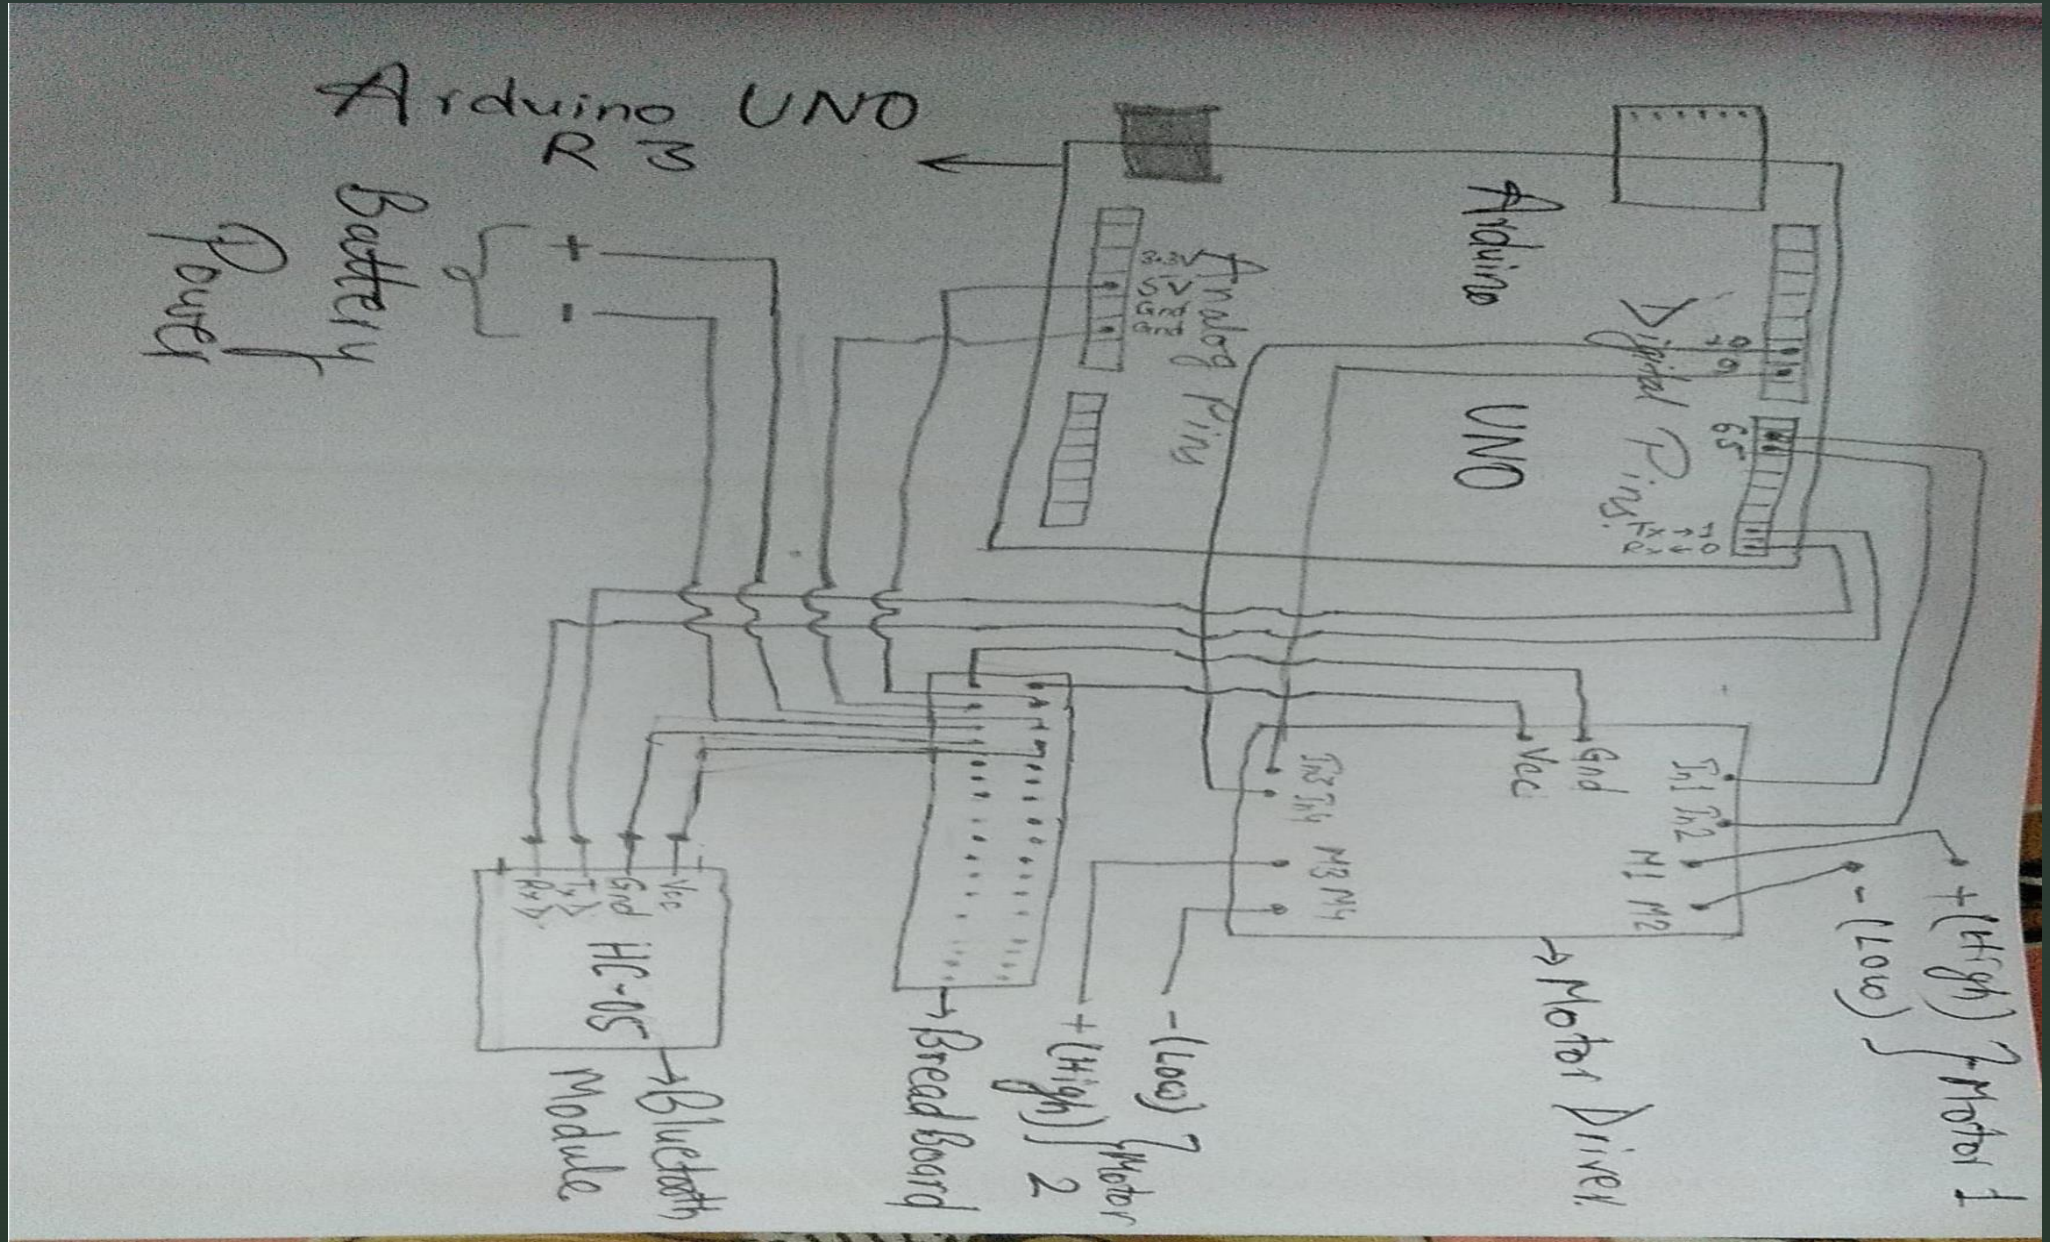 Arduino UNO
R3
Battery
Power
+
-
Arduino
UNO
3.3V
5V
Gnd
Gnd
Analog Pins
Digital Pins
10
9
6 5
Tx → 1
Rx ← 0
In1 In2
M1 M2
Gnd
Vcc
In3 In4
M3 M4
→ Motor Driver
+ (High)
- (Low)
Motor 1
- (Low)
+ (High)
Motor
2
→ Bread Board
Vcc
Gnd
Tx
Rx
HC-05
→ Bluetooth
Module